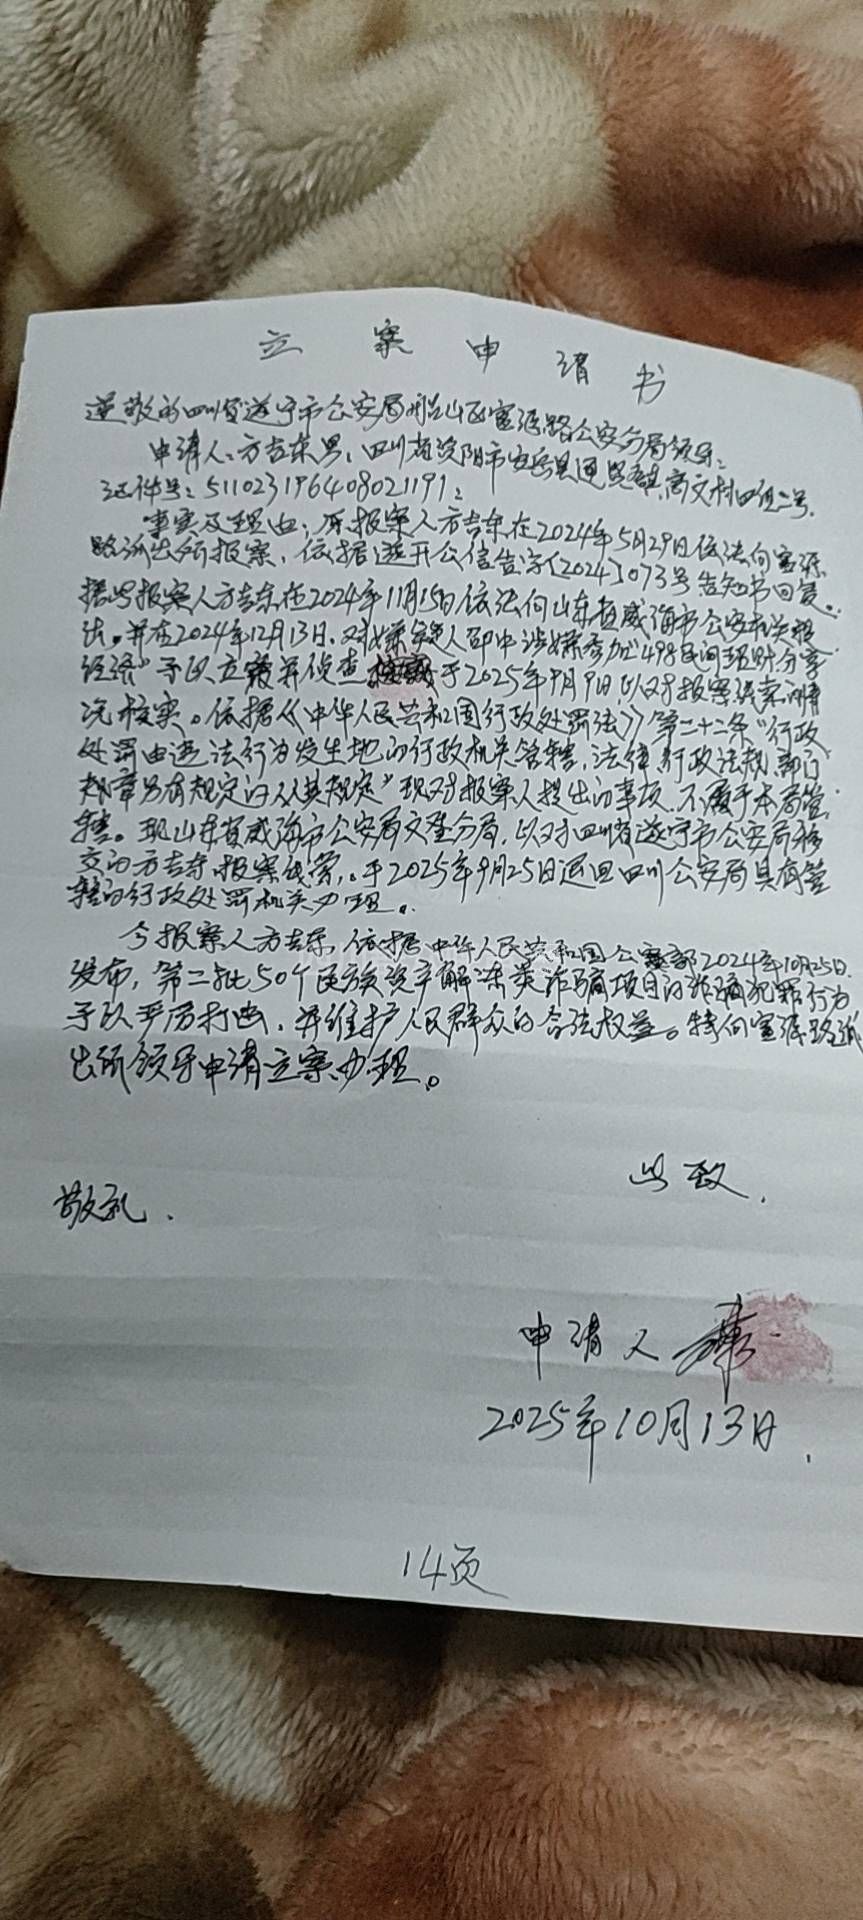 立案申请书
尊敬的四川省遂宁市公安局船山区富源路公安分局领导:
申请人:方吉东男,四川省资阳市安岳县通贤镇高文村四组二号,
证件号:511023196408021191;
事实及理由:原报案人方吉东在2024年5月29日依法向富源
路派出所报案,依据遂开公信告字〔2024〕073号告知书回复。
据此报案人方吉东在2024年11月15日依法向山东省威海市公安机关报
法。并在2024年12月13日,对嫌疑人邵中涉嫌参加“498民间理财分享
经济”予以立案并侦查 于2025年9月9日,以对报案线索清
况核实。依据《中华人民共和国行政处罚法》第二十二条“行政
处罚由违法行为发生地的行政机关管辖,法律行政法规、部门
规章另有规定的从其规定”现对报案人提出的事项,不属于本局管
辖。现山东省威海市公安局文登分局,以对四川省遂宁市公安局移
交的方吉东报案线索,。于2025年9月25日退回四川公安局具有管
辖的行政处罚机关办理。
今报案人方吉东,依据中华人民共和国公安部2024年10月25日
发布,第二批50个民族资产解冻类诈骗项目的诈骗犯罪行为
予以严厉打击,并维护人民群众的合法权益。特向富源路派
出所领导申请立案办理。
此致,
敬礼.
申请人
2025年10月13日,
14页